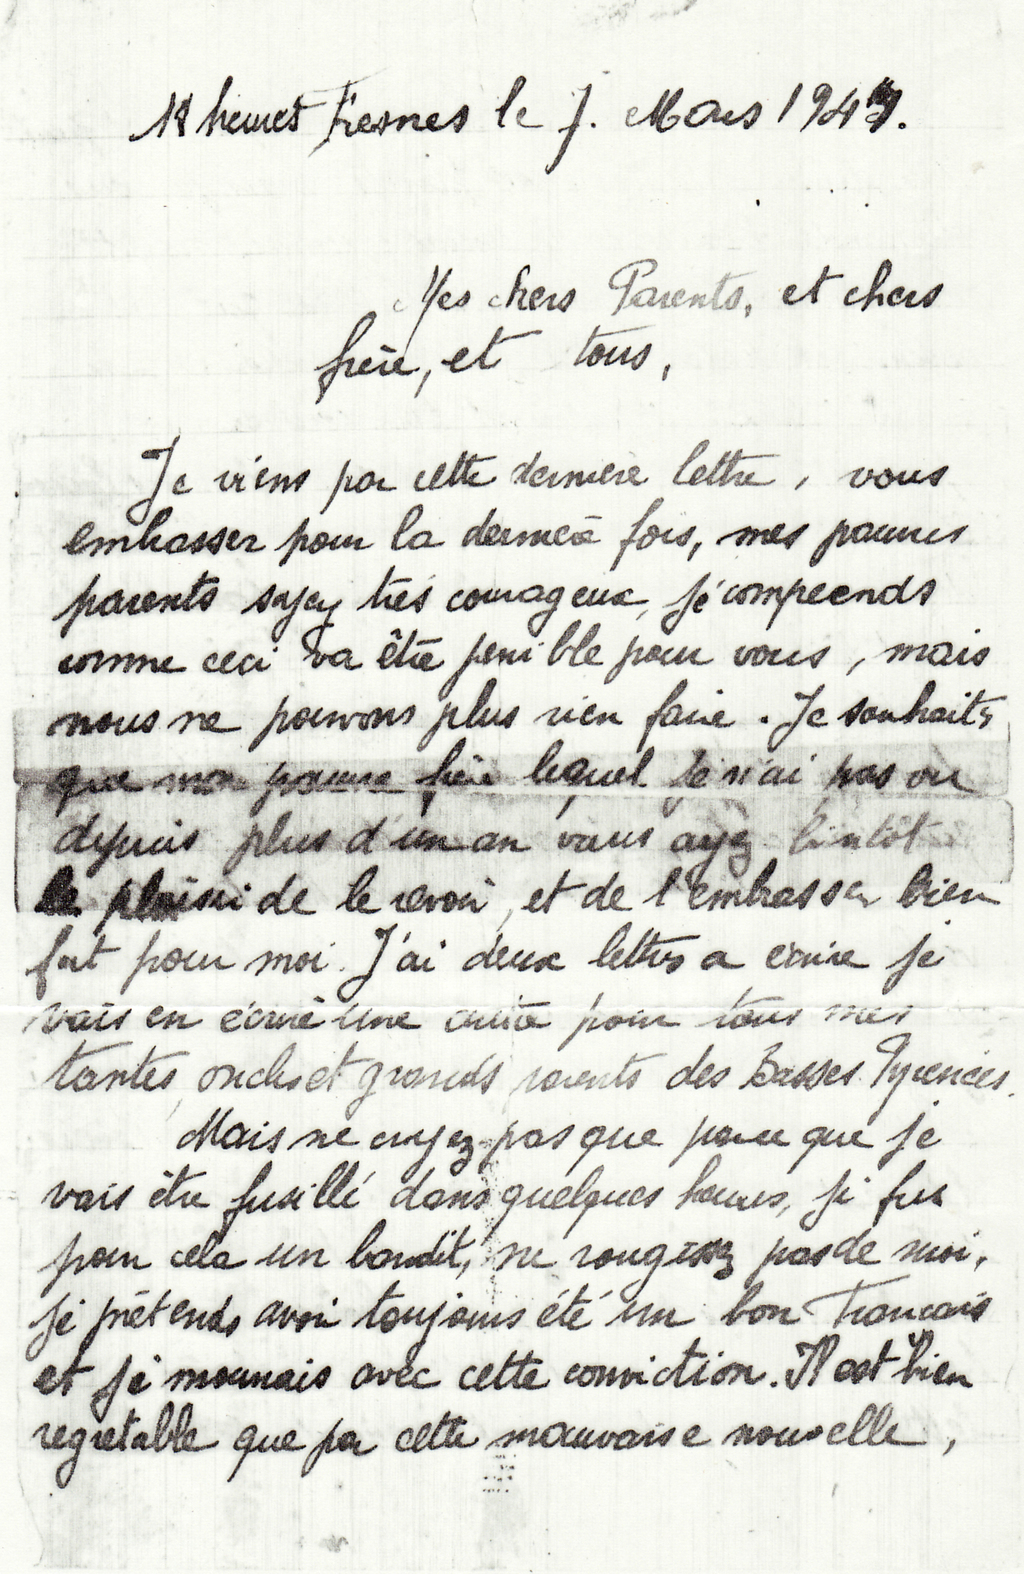 heures Fresnes le 7. Mars 194
Mes chers Parents, et chers
frère, et tous,
Je viens par cette dernière lettre, vous
embrasser pour la dernière fois, mes pauvres
parents soyez très courageux, je comprends
comme ceci va être penible pour vous, mais
nous ne pouvons plus rien faire. Je souhaite
que mon pauvre frère lequel je n'ai pas vu
depuis plus d'un an vous ayez bintôt
le plaisir de le revoir, et de l'embrasser bien
fort pour moi. J'ai deux lettres a écrire je
vais en écrire une autre pour tous mes
tantes, oncles et grands parents des Basses Pyrenées.
Mais ne croyez pas que parce que je
vais être fusillé dans quelques heures, je fus
pour cela un bandit, ne rougissez pas de moi,
je prétends avoir toujours été un bon Francais
et je mourrais avec cette conviction. Il est bien
regretable que par cette mauvaise nouvelle,